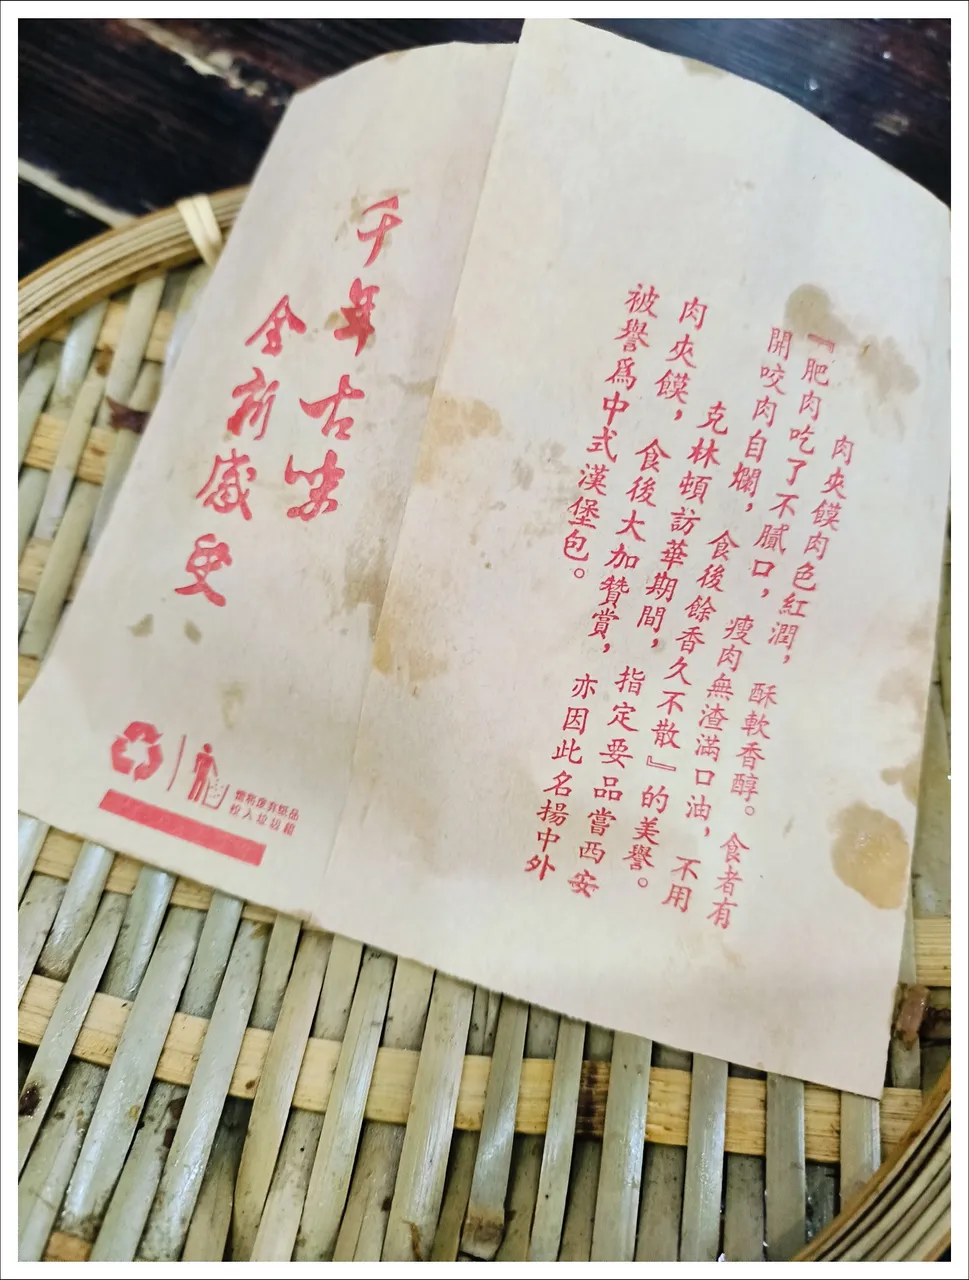 肉夾饃肉色紅潤，酥軟香醇。食者有
『肥肉吃了不膩口，瘦肉無渣滿口油，不用
開咬肉自爛，食後餘香久不散』的美譽。
克林頓訪華期間，指定要品嘗西安
肉夾饃，食後大加贊賞，亦因此名揚中外
被譽爲中式漢堡包。
千年古味
全新感受
投入垃圾箱